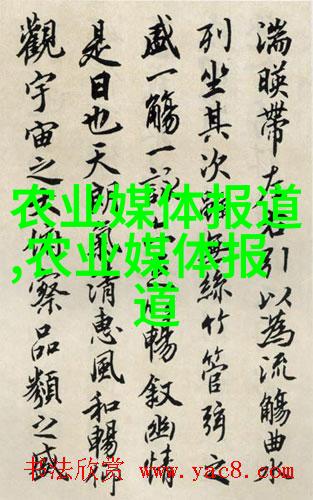 湍暎帶左右引以為流觴曲
列坐其次雖無絲竹管弦之
盛一觴一詠暢叙幽情
是日也天朗氣清惠風和暢仰
觀宇宙之俯察品類之盛
农业媒体报道
,农业媒体报
道
书法欣赏 www.yac8.com